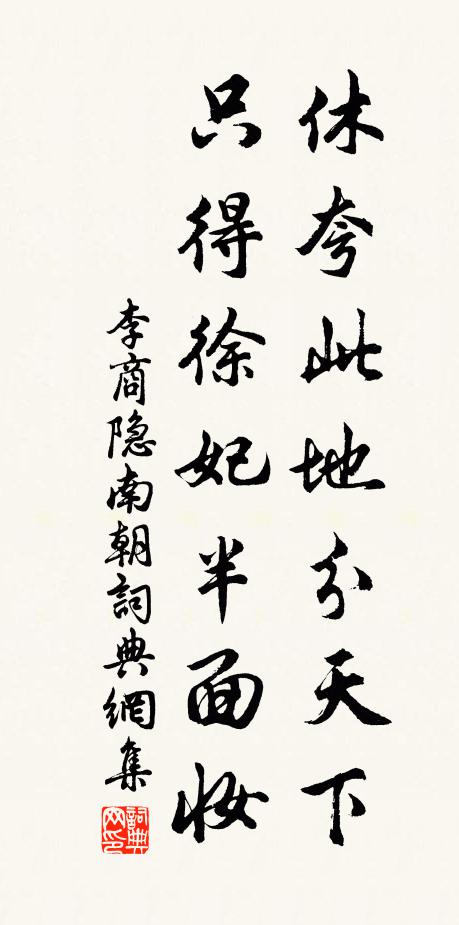 休夸此地分天下
只得徐妃半面妆
李商隐南朝詞典網集
詞典
网印